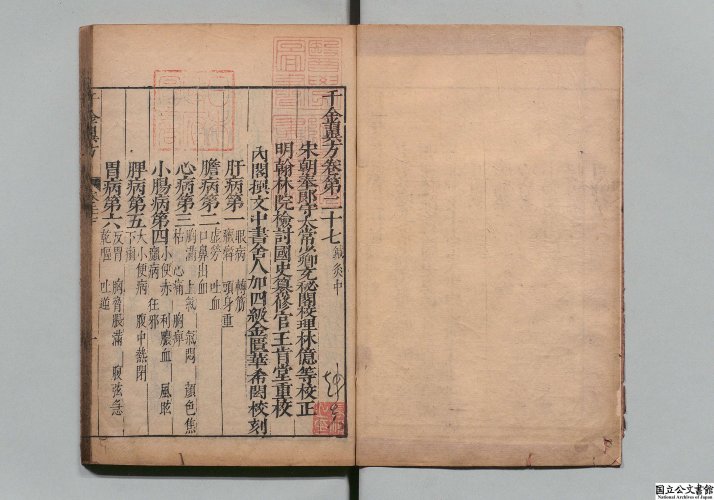 千金翼方卷第二十七 鍼灸中
宋朝奉郎守太常少卿充秘閣校理林億等校正
明翰林院檢討國史纂修官王肯堂重校
內閣撰文中書舍人加四級金匱華希閎校刻
肝病第一 眼病 轉筋 癲癇 頭身重
膽病第二 虛勞 吐血 口鼻出血
心病第三 胸滿 上氣 氣悶 顏色焦枯 心痛 胸痺
小腸病第四 小便赤 利膿血 風眩 癲病 狂邪
脾病第五 大小便病 腹中熱閉 下痢
胃病第六 反胃 胸脅脹滿 腹弦急 乾嘔 吐逆
千金翼方
國立公文書館
National Archives of Japan